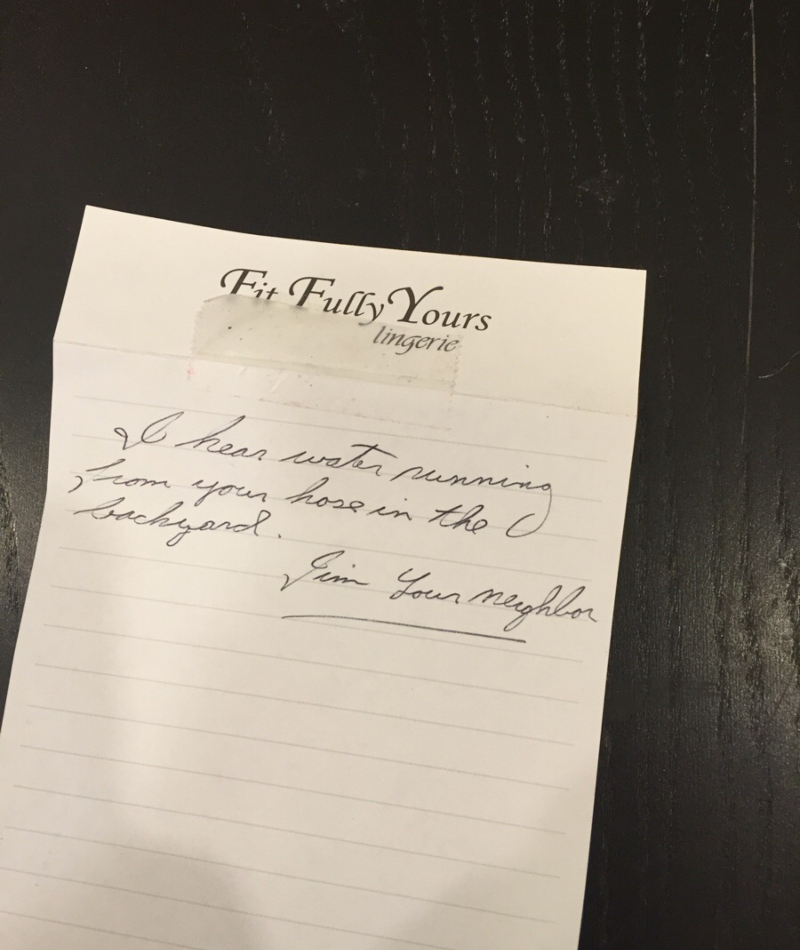 Fit Fully Yours
lingerie
I hear water running
from your hose in the
backyard.
Jim Your neighbor